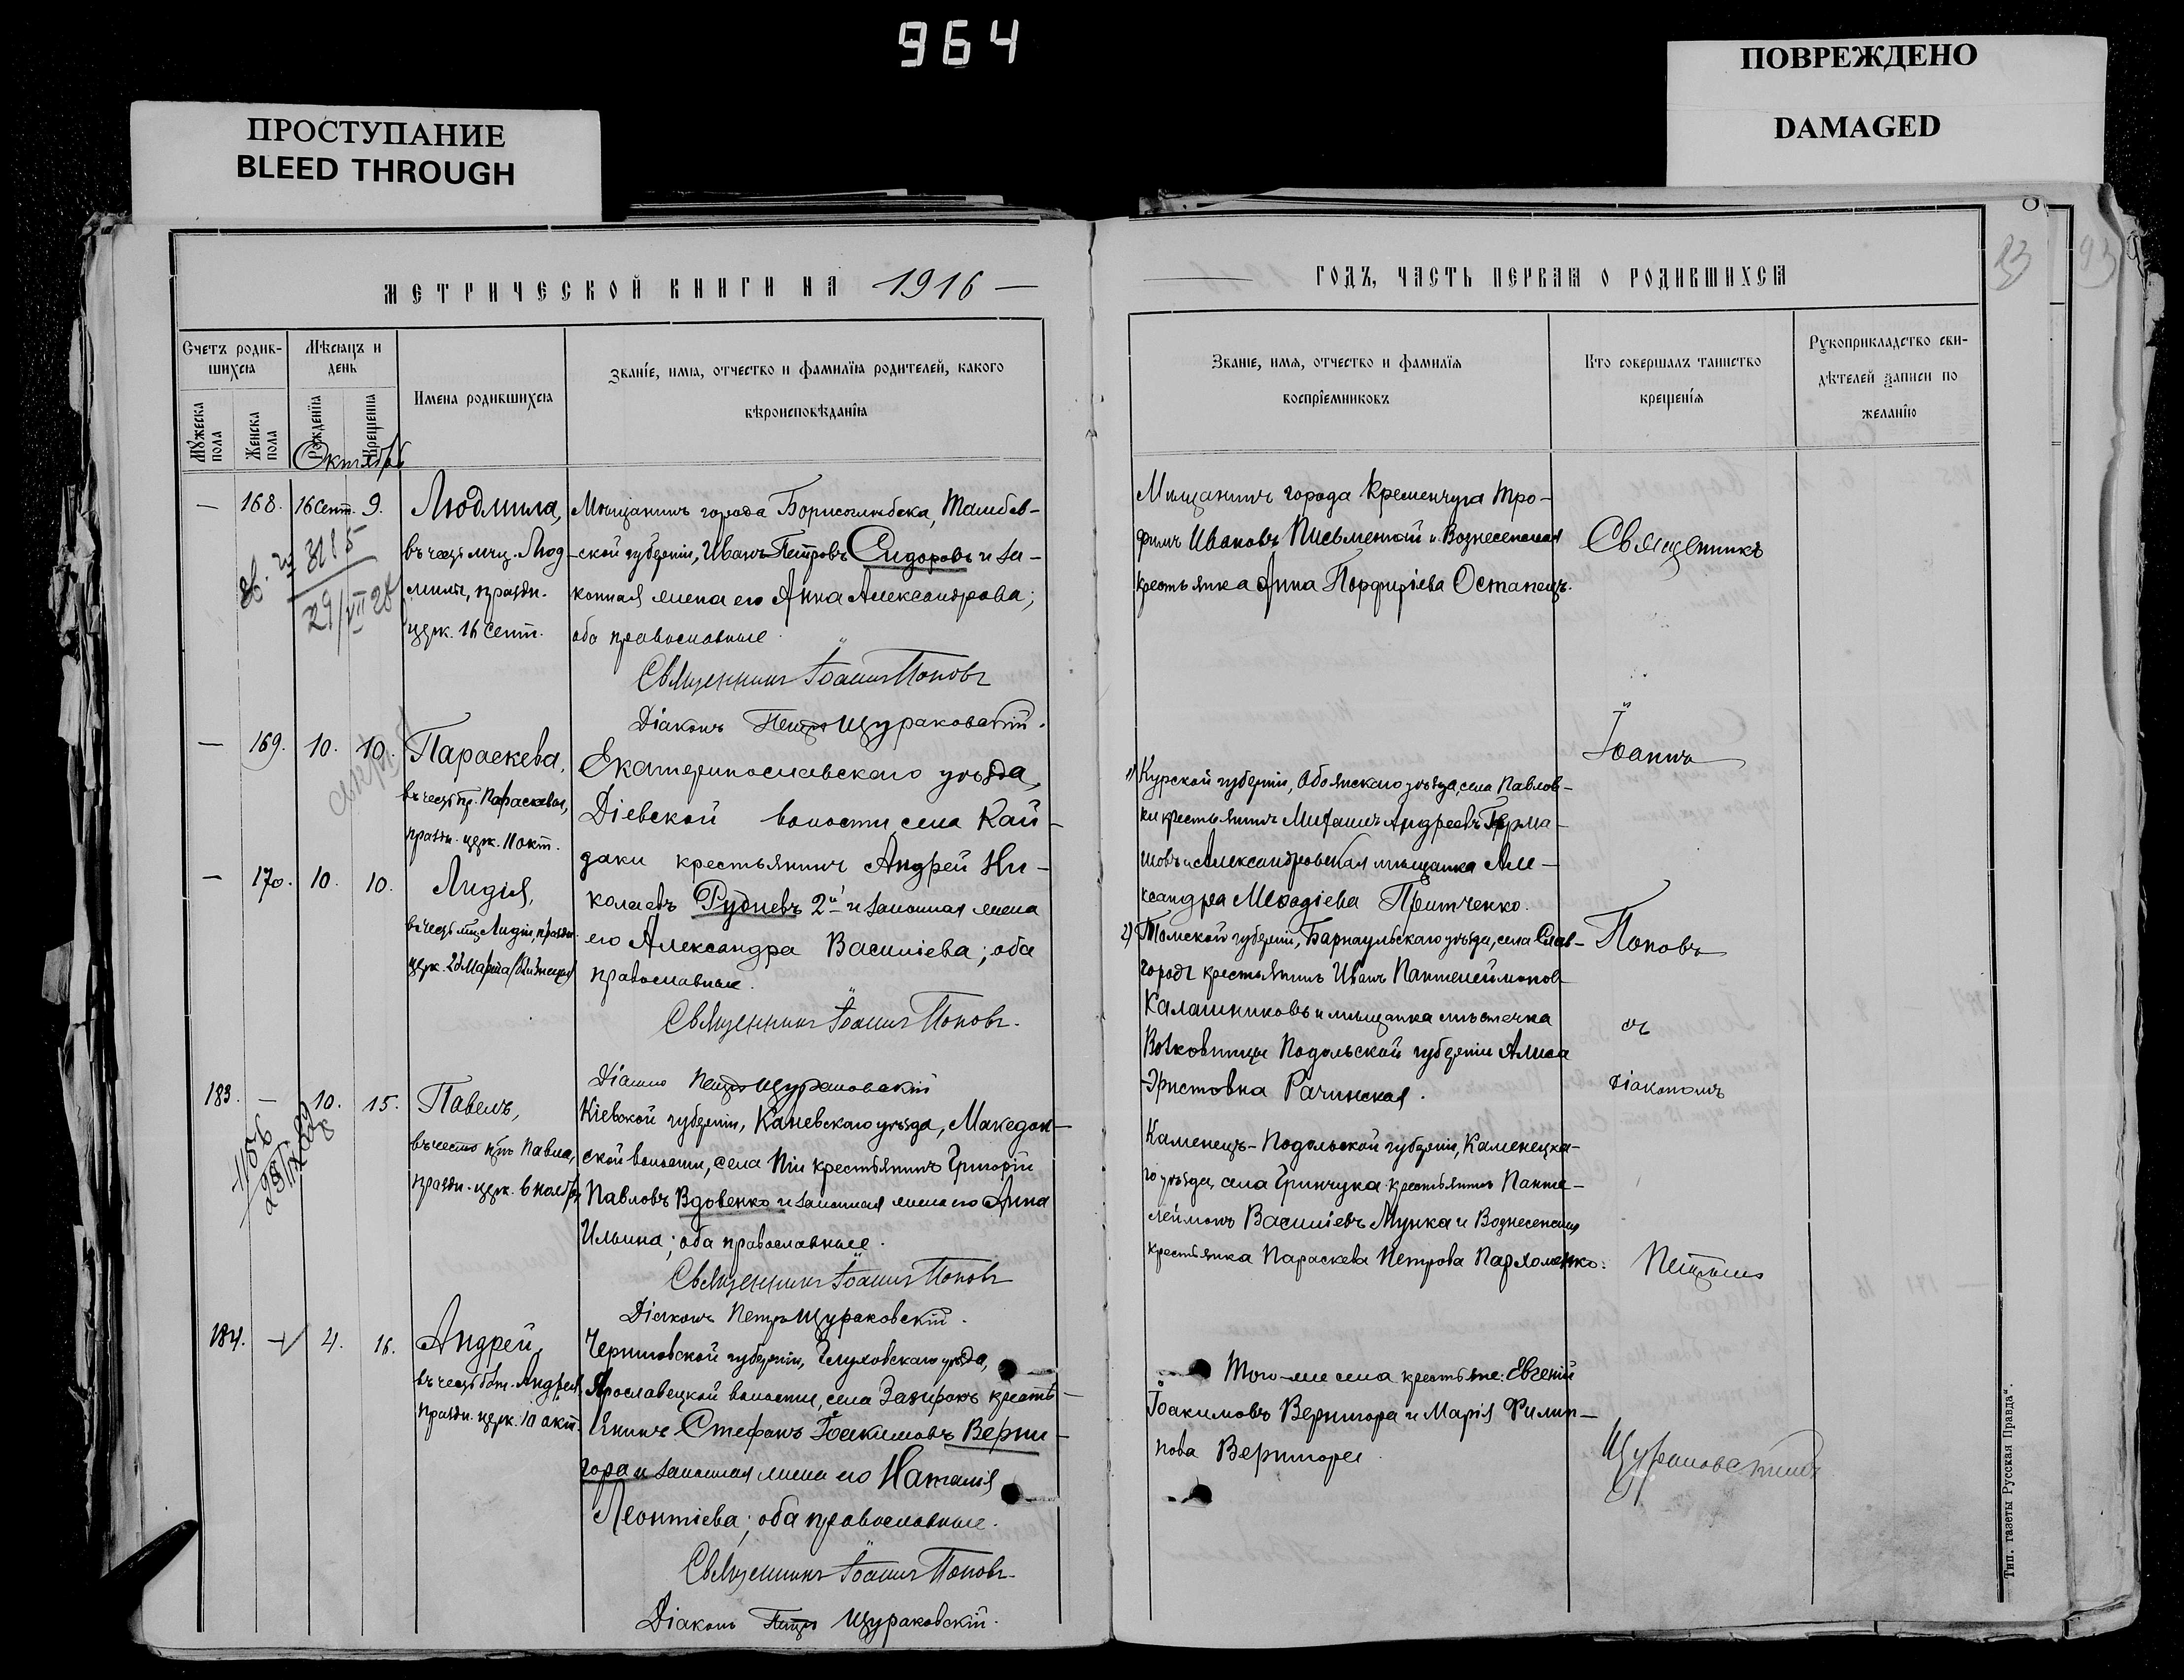 964
ПРОСТУПАНИЕ
BLEED THROUGH
ПОВРЕЖДЕНО
DAMAGED
МЕТРИЧЕСКОЙ КНИГИ НА 1916 —
Счетъ родив-
шихся
Мѣсяцъ и
день
Имена родившихся
Званіе, имя, отчество и фамилія родителей, какого
вѣроисповѣданія
Мужеска
пола
Женска
пола
Рожденія
Крещенія
Октябрь
— 168. 16 Сент. 9.
Людмила,
въ честь мчц. Люд-
милы, праздн.
церк. 16 Сент.
Мѣщанинъ города Борисоглѣбска, Тамбов-
ской губерніи, Иванъ Петровъ Сидоровъ и за-
конная жена его Анна Александрова;
оба православные.
Священникъ Іоаннъ Поповъ
Діаконъ Петръ Щураковскій.
3115
29/VII 28
— 169. 10. 10.
Параскева,
въ честь пр. Параскевы,
праздн. церк. 11 окт.
— 170. 10. 10.
Лидія,
въ честь мц. Лидіи, праздн.
церк. 23 Марта (близнецы)
Екатеринославскаго уѣзда,
Діевской волости, села Кай-
даки крестьянинъ Андрей Ни-
колаевъ Рудневъ 2й и законная жена
его Александра Василіева; оба
православные.
Священникъ Іоаннъ Поповъ.
Діаконъ Петръ Щураковскій
183. — 10. 15.
1156
Павелъ,
въ честь Павла,
праздн. церк. 6 ноября
Кіевской губерніи, Каневскаго уѣзда, Македон-
ской волости, села Піи крестьянинъ Григорій
Павловъ Вдовенко и законная жена его Анна
Ильина; оба православные.
Священникъ Іоаннъ Поповъ
Діаконъ Петръ Щураковскій.
184. — 4. 16.
Андрей,
въ честь Андрея,
праздн. церк. 10 окт.
Черниговской губерніи, Глуховскаго уѣзда,
Ярославецкой волости, села Зазирокъ кресть-
янинъ Стефанъ Іоакимовъ Верни-
гора и законная жена его Наталія
Леонтіева; оба православные.
Священникъ Іоаннъ Поповъ.
Діаконъ Петръ Щураковскій.
ГОДЪ, ЧАСТЬ ПЕРВАЯ О РОДИВШИХСЯ
93
Званіе, имя, отчество и фамилія
воспріемниковъ
Кто совершалъ таинство
крещенія
Рукоприкладство сви-
дѣтелей записи по
желанію
Мѣщанинъ города Кременчуга Тро-
фимъ Ивановъ Письменный и Вознесенская
крестьянка Анна Порфиріева Останецъ.
1) Курской губерніи, Обоянскаго уѣзда, села Павлов-
ки крестьянинъ Андреевъ
и Александровская мѣщанка Але-
ксандра Меѳодіева Притченко.
2) Томской губерніи, Барнаульскаго уѣзда, села Слав-
города крестьянинъ Иванъ Пантелеймоновъ
Калашниковъ и мѣщанка мѣстечка
Волковинцы Подольской губерніи Алиса
Эристовна Рачинская.
Каменецъ-Подольской губерніи, Каменецка-
го уѣзда, села Гринчука крестьянинъ Панте-
леймонъ Василіевъ Мупка и Вознесенская
крестьянка Параскева Петрова Пархоменко.
Того-же села крестьяне: Евгеній
Іоакимовъ Вернигора и Марія Филип-
пова Вернигора.
Священникъ
Іоаннъ
Поповъ
съ
діакономъ
Петромъ
Щураковскимъ
Тип. газеты „Русская Правда“.